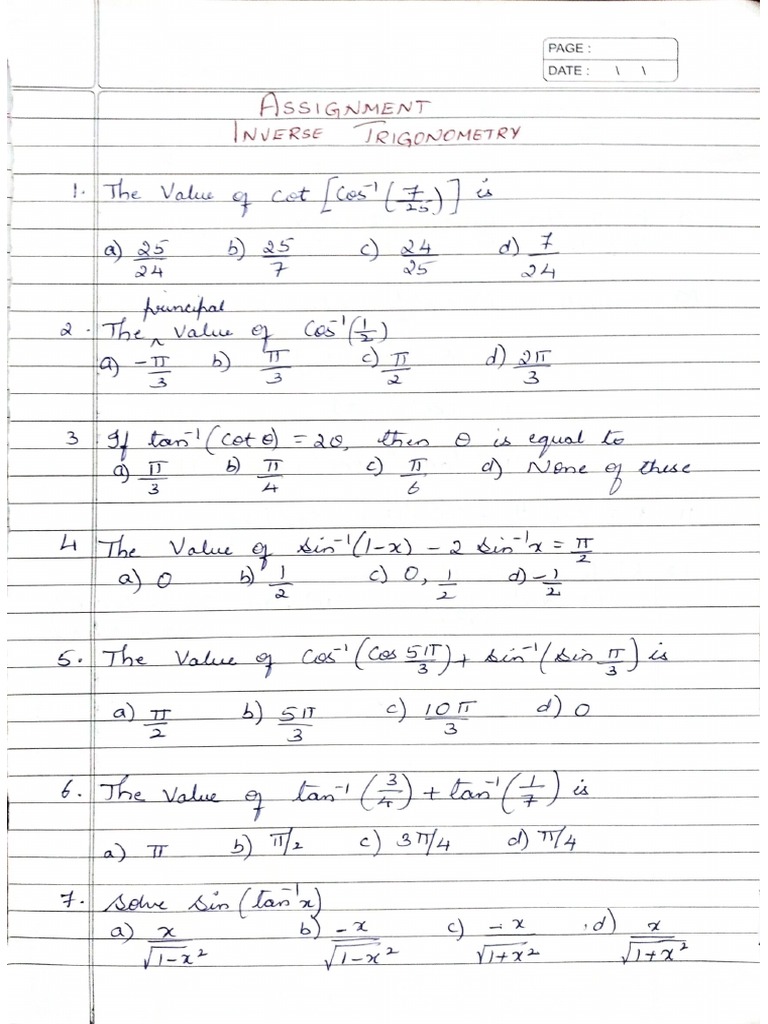 PAGE :
DATE : \ \
ASSIGNMENT
INVERSE TRIGONOMETRY
1. The Value of cot [cos⁻¹(7/25)] is
a) 25/24 b) 25/7 c) 24/25 d) 7/24
principal
2. The ^ value of cos⁻¹(1/2)
a) -π/3 b) π/3 c) π/2 d) 2π/3
3 If tan⁻¹(cot θ) = 2θ, then θ is equal to
a) π/3 b) π/4 c) π/6 d) None of these
4 The Value of sin⁻¹(1-x) - 2 sin⁻¹x = π/2
a) 0 b) 1/2 c) 0, 1/2 d) -1/2
5. The Value of cos⁻¹(cos 5π/3) + sin⁻¹(sin π/3) is
a) π/2 b) 5π/3 c) 10π/3 d) 0
6. The Value of tan⁻¹(3/4) + tan⁻¹(1/7) is
a) π b) π/2 c) 3π/4 d) π/4
7. Solve sin (tan⁻¹x)
a) x/√1-x² b) -x/√1-x² c) -x/√1+x² d) x/√1+x²